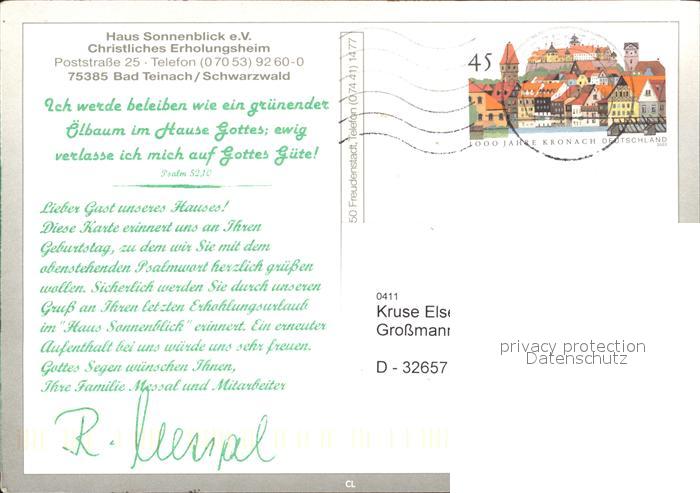 Haus Sonnenblick e.V.
Christliches Erholungsheim
Poststraße 25 · Telefon (0 70 53) 92 60-0
75385 Bad Teinach/Schwarzwald
Ich werde beleiben wie ein grünender
Ölbaum im Hause Gottes; ewig
verlasse ich mich auf Gottes Güte!
Psalm 52,10
Lieber Gast unseres Hauses!
Diese Karte erinnert uns an Ihren
Geburtstag, zu dem wir Sie mit dem
obenstehenden Psalmwort herzlich grüßen
wollen. Sicherlich werden Sie durch unseren
Gruß an Ihren letzten Erhohlungsurlaub
im "Haus Sonnenblick" erinnert. Ein erneuter
Aufenthalt bei uns würde uns sehr freuen.
Gottes Segen wünschen Ihnen,
Ihre Familie Messal und Mitarbeiter
R. Messal
50 Freudenstadt, Telefon (0 74 41) 14 77
45
1000 JAHRE KRONACH DEUTSCHLAND
2003
0411
Kruse Else
Großmann
D - 32657
privacy protection
Datenschutz
CL